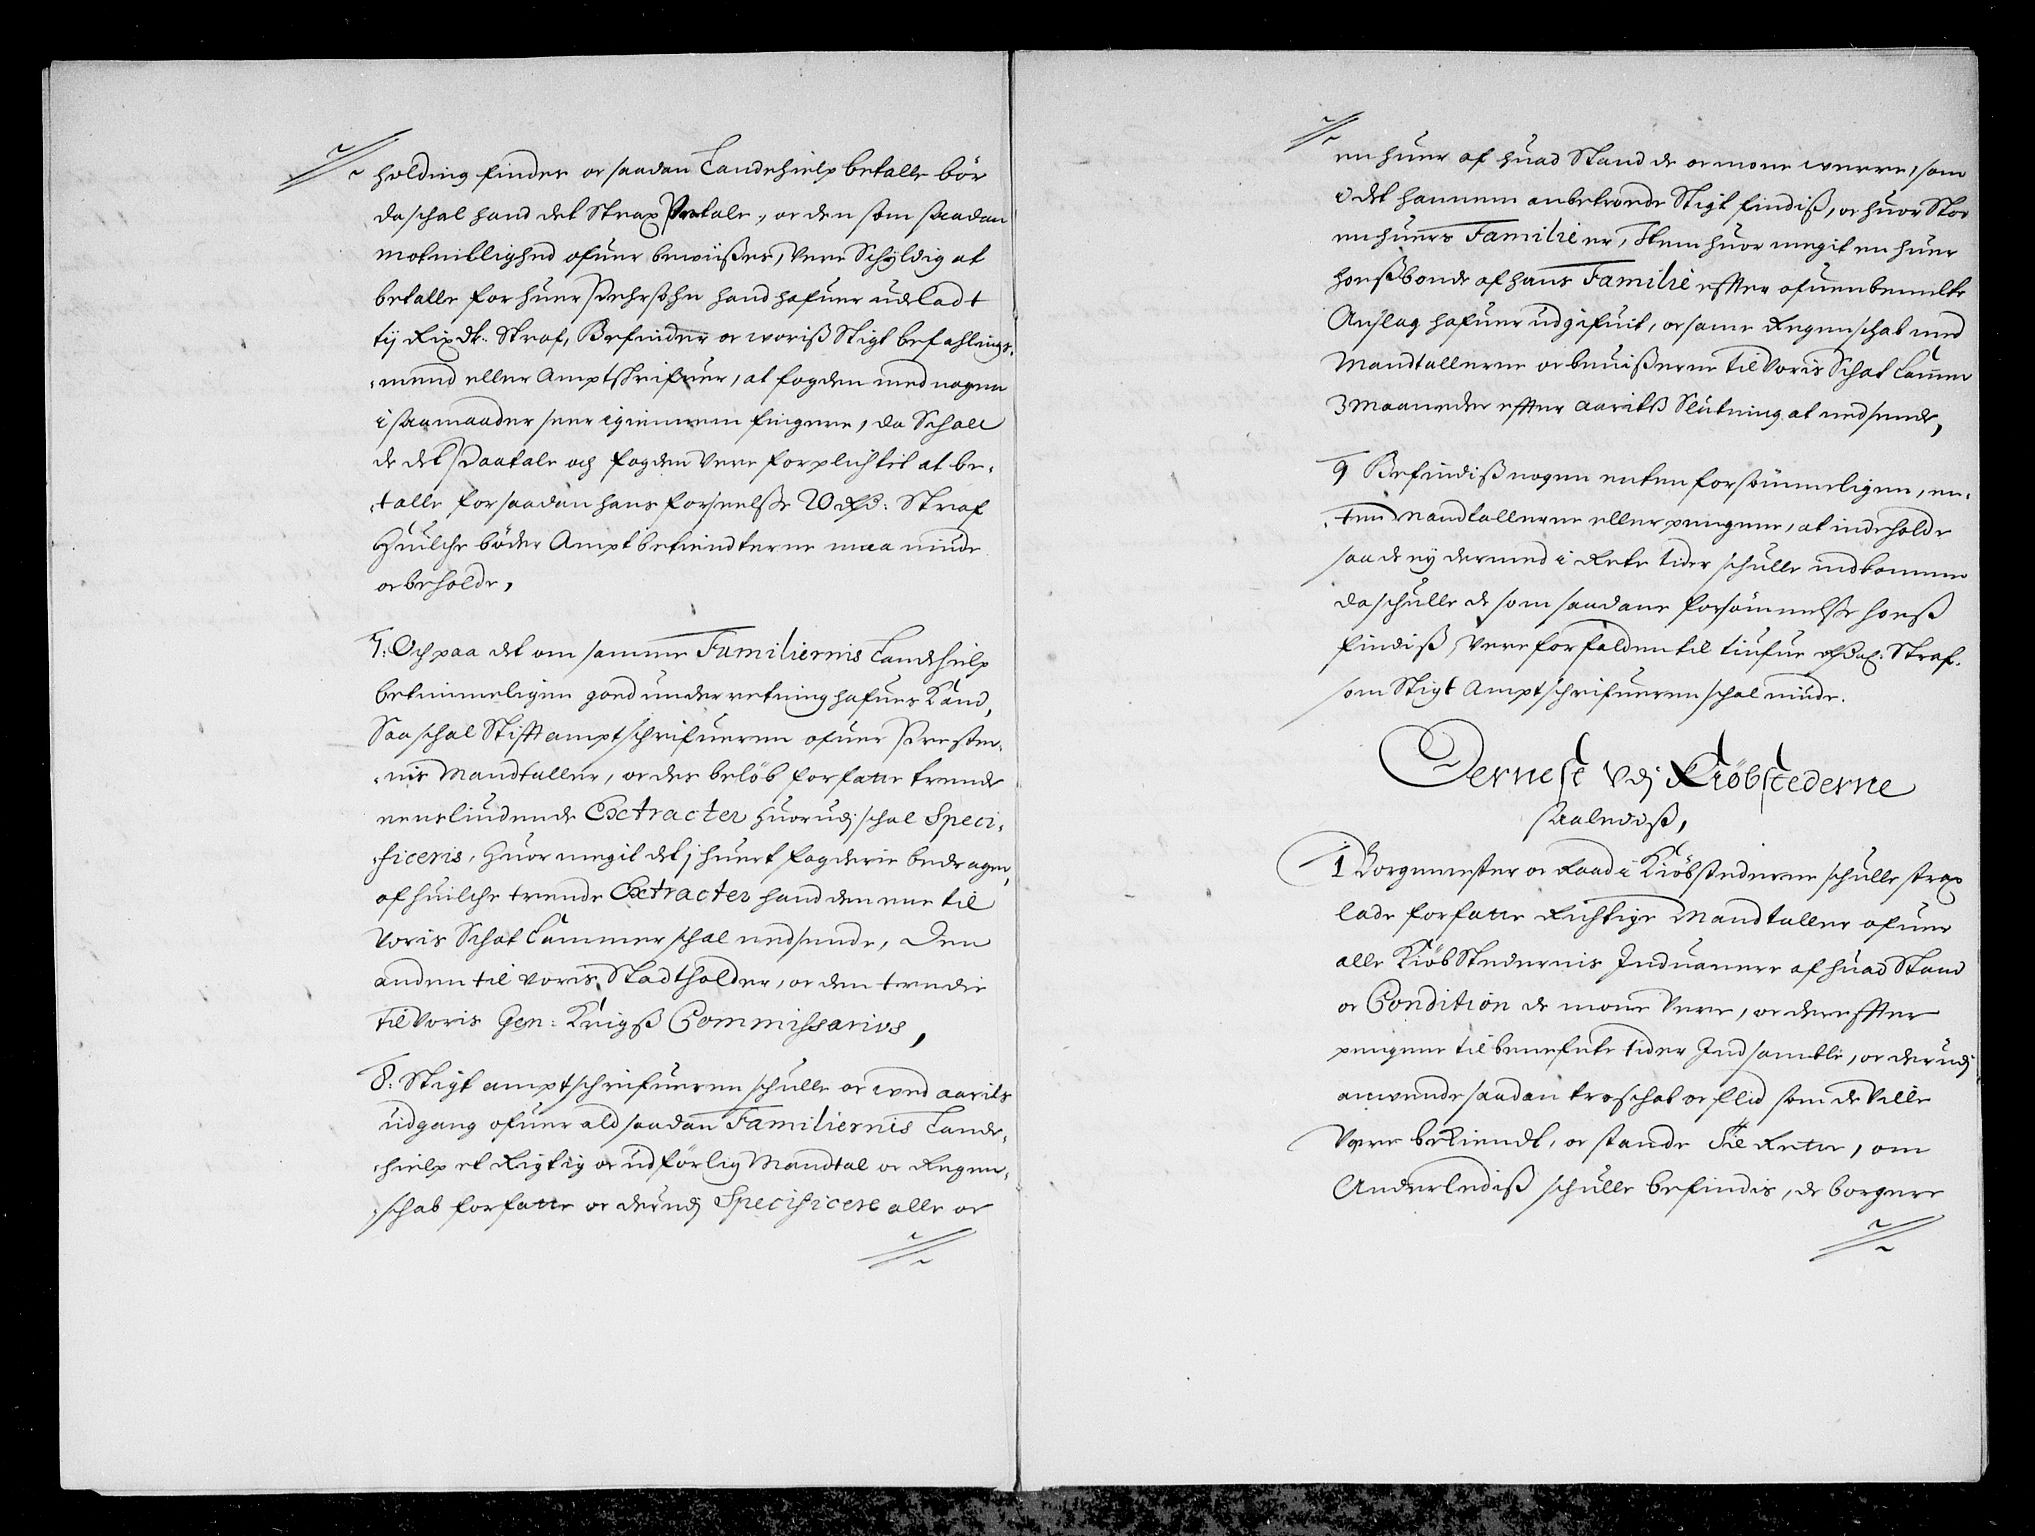 holding finder oc saadan Landehielp betalle bör
da schal hand det Strax Paatale, oc den som saadan
motuillighed ofuer beviißes, Vere Schyldig at
betalle for huer Pehrsohn hand hafuer udeladt
tij Rixdr. Straf, Befinder oc woriß Stigt befahlings-
-mend eller Amptschrifuer, at fogden med nogen
i saamaader seer igiennem fingere, da Schall
de det Paatale och fogden Vere forplichtet at be-
-talle for saadan hans forseelße 20 Rdr: Straf
Huilche böder Amptbetiendterne maa niude
oc beholde,
7. Och paa det om samme Familiernis Landehielp
betimmeligen goed underretning hafues kand,
Saa schal Stiftamptschrifueren ofuer Prester-
-nis Mandtaller, oc des belöb forfatte trende
eensliudende Extracter huorudj schal Speci-
-ficeris, huor megit det j huert fogderie bedrager,
af huilche trende Extracter hand den ene til
Voris Schat Cammer schal nedsende, Den
anden til Voris Stadtholder, oc den tredie
til Voris Gen: Krigß Commissarius,
8. Stigt amptschrifueren schulle oc ved aarits
udgang ofuer ald saadan Familiernis Lande-
-hielp et Rigtig oc udförlig Mandtal oc Regen-
-schab forfatte oc derudj Specificere alle oc
en huer af huad Stand de oc mone werre, som
i det hannem anbetroede Stigt findiß, oc huor Stor
en huers Familie er, Item huor megit en huer
hoesbonde af hans Familie effter ofuenbemelte
Anslag hafuer udgifuit, oc same Regenschab med
Mandtallerne oc beuißerne til Voris Schat Cammer
3 Maaneder effter aaritß Slutning at nedsende,
9 Befindiß nogen enten forsömmeligen, en-
-ten Mandtallerne eller pengene, at indeholde
saa de ey dermed i Rette tider schulle indkomme
da schulle de som saadane forsömmelse hoeß
findiß, Vere forfalden til tiufue Rdr. Straf.
som Stigt Amptschrifueren schal niude.
Dernest Vdj Kiöbstederne
saalediß,
1 Borgemester oc Raad i Kiöbstederne schulle strax
lade forfatte Richtige Mandtaller ofuer
alle KiöbStedernis Induaanere af huad Stand
oc Condition de mone Vere, oc dereffter
pengene til benefnte tider Indsamble, oc derudj
anvende saadan troschab oc flid som de Ville
Være bekiendt, oc stande til Rette, om
Anderlediß schulle befindis, de borgere